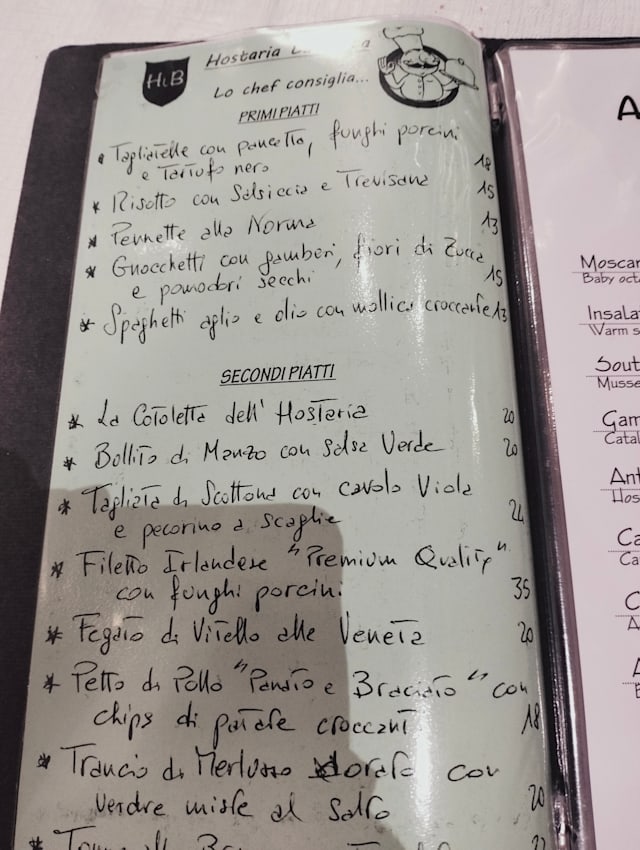 HtB
Hostaria
Lo chef consiglia...
PRIMI PIATTI
* Tagliatelle con pancetta, funghi porcini
e Tartufo nero 18
* Risotto con Salsiccia e Trevisana 15
* Pennette alla Norma 13
* Gnocchetti con gamberi, fiori di Zucca
e pomodori secchi 15
* Spaghetti aglio e olio con mollica croccante 13
SECONDI PIATTI
* La Cotoletta dell'Hostaria 20
* Bollito di Manzo con Salsa Verde 20
* Tagliata di Scottona con cavolo Viola
e pecorino a scaglie 24
* Filetto Irlandese "Premium Quality"
con funghi porcini 35
* Fegato di Vitello alla Veneta 20
* Petto di Pollo "Panato e Braciato" con
chips di patate croccanti 18
* Trancio di Merluzzo dorato con
verdure miste al salto 20
A
Moscar
Baby octo
Insala
Warm s
Sout
Musse
Gam
Catal
Ant
Hos
Ca
Ca
C
A
A